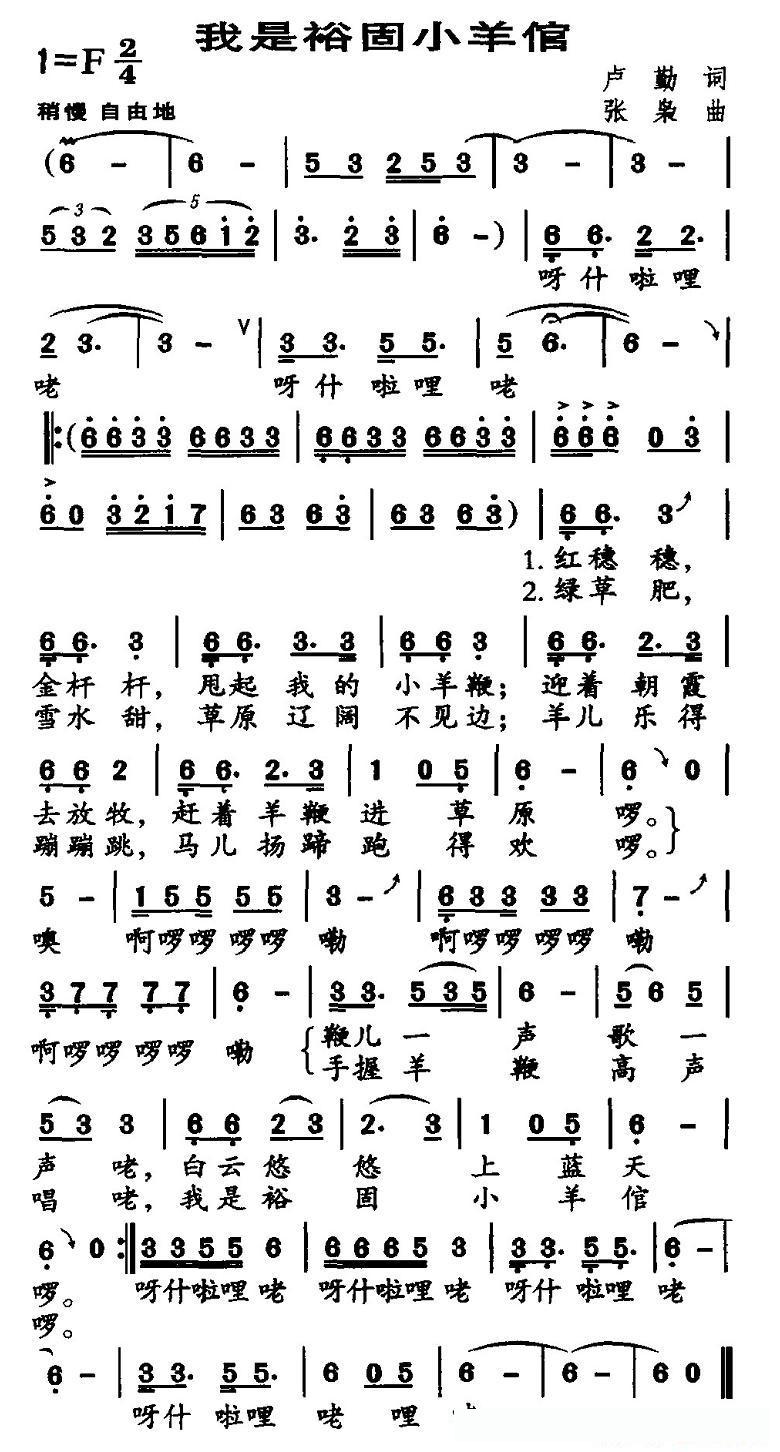 我是裕固小羊倌
1=F 2/4
卢勤词
稍慢 自由地
张枭曲
(6 - | 6 - | 5 3 2 5 3 | 3 - | 3 - |
3 5
5 3 2 3 5 6 1 2 | 3. 2 3 | 6 - ) | 6 6. 2 2. |
呀什 啦哩
2 3. | 3 - ∨ | 3 3. 5 5. | 5 6. | 6 - |
咾 呀什 啦哩 咾
|: (6 6 3 3 6 6 3 3 | 6 6 3 3 6 6 3 3 | 6 6 6 0 3 |
6 0 3 2 1 7 | 6 3 6 3 | 6 3 6 3 ) | 6 6. 3 |
1. 红穗 穗,
2. 绿草 肥,
6 6. 3 | 6 6. 3. 3 | 6 6 3 | 6 6. 2. 3 |
金杆 杆, 甩起 我 的 小羊鞭; 迎着 朝霞
雪水 甜, 草原 辽 阔 不见边; 羊儿 乐得
6 6 2 | 6 6. 2. 3 | 1 0 5 | 6 - | 6 0
去放牧, 赶着 羊鞭 进 草 原 啰。
蹦蹦跳, 马儿 扬蹄 跑 得 欢 啰。
5 - | 1 5 5 5 5 | 3 - | 6 3 3 3 3 | 7 - |
噢 啊啰啰 啰啰 嘞 啊啰啰 啰啰 嘞
3 7 7 7 7 | 6 - | 3 3. 5 3 5 | 6 - | 5 6 5 |
啊啰啰 啰啰 嘞 鞭儿 一 声 歌 一
手握 羊 鞭 高 声
5 3 3 | 6 6 2 3 | 2. 3 | 1 0 5 | 6 - |
声 咾, 白云悠 悠 上 蓝 天
唱 咾, 我是裕 固 小 羊 倌
6 0 :| 3 3 5 5 6 | 6 6 6 5 3 | 3 3. 5 5. | 6 - |
啰。 呀什啦哩 咾 呀什啦哩 咾 呀什 啦哩 咾
啰。
6 - | 3 3. 5 5. | 6 0 5 | 6 - | 6 - | 6 0 ‖
呀什 啦哩 咾 哩